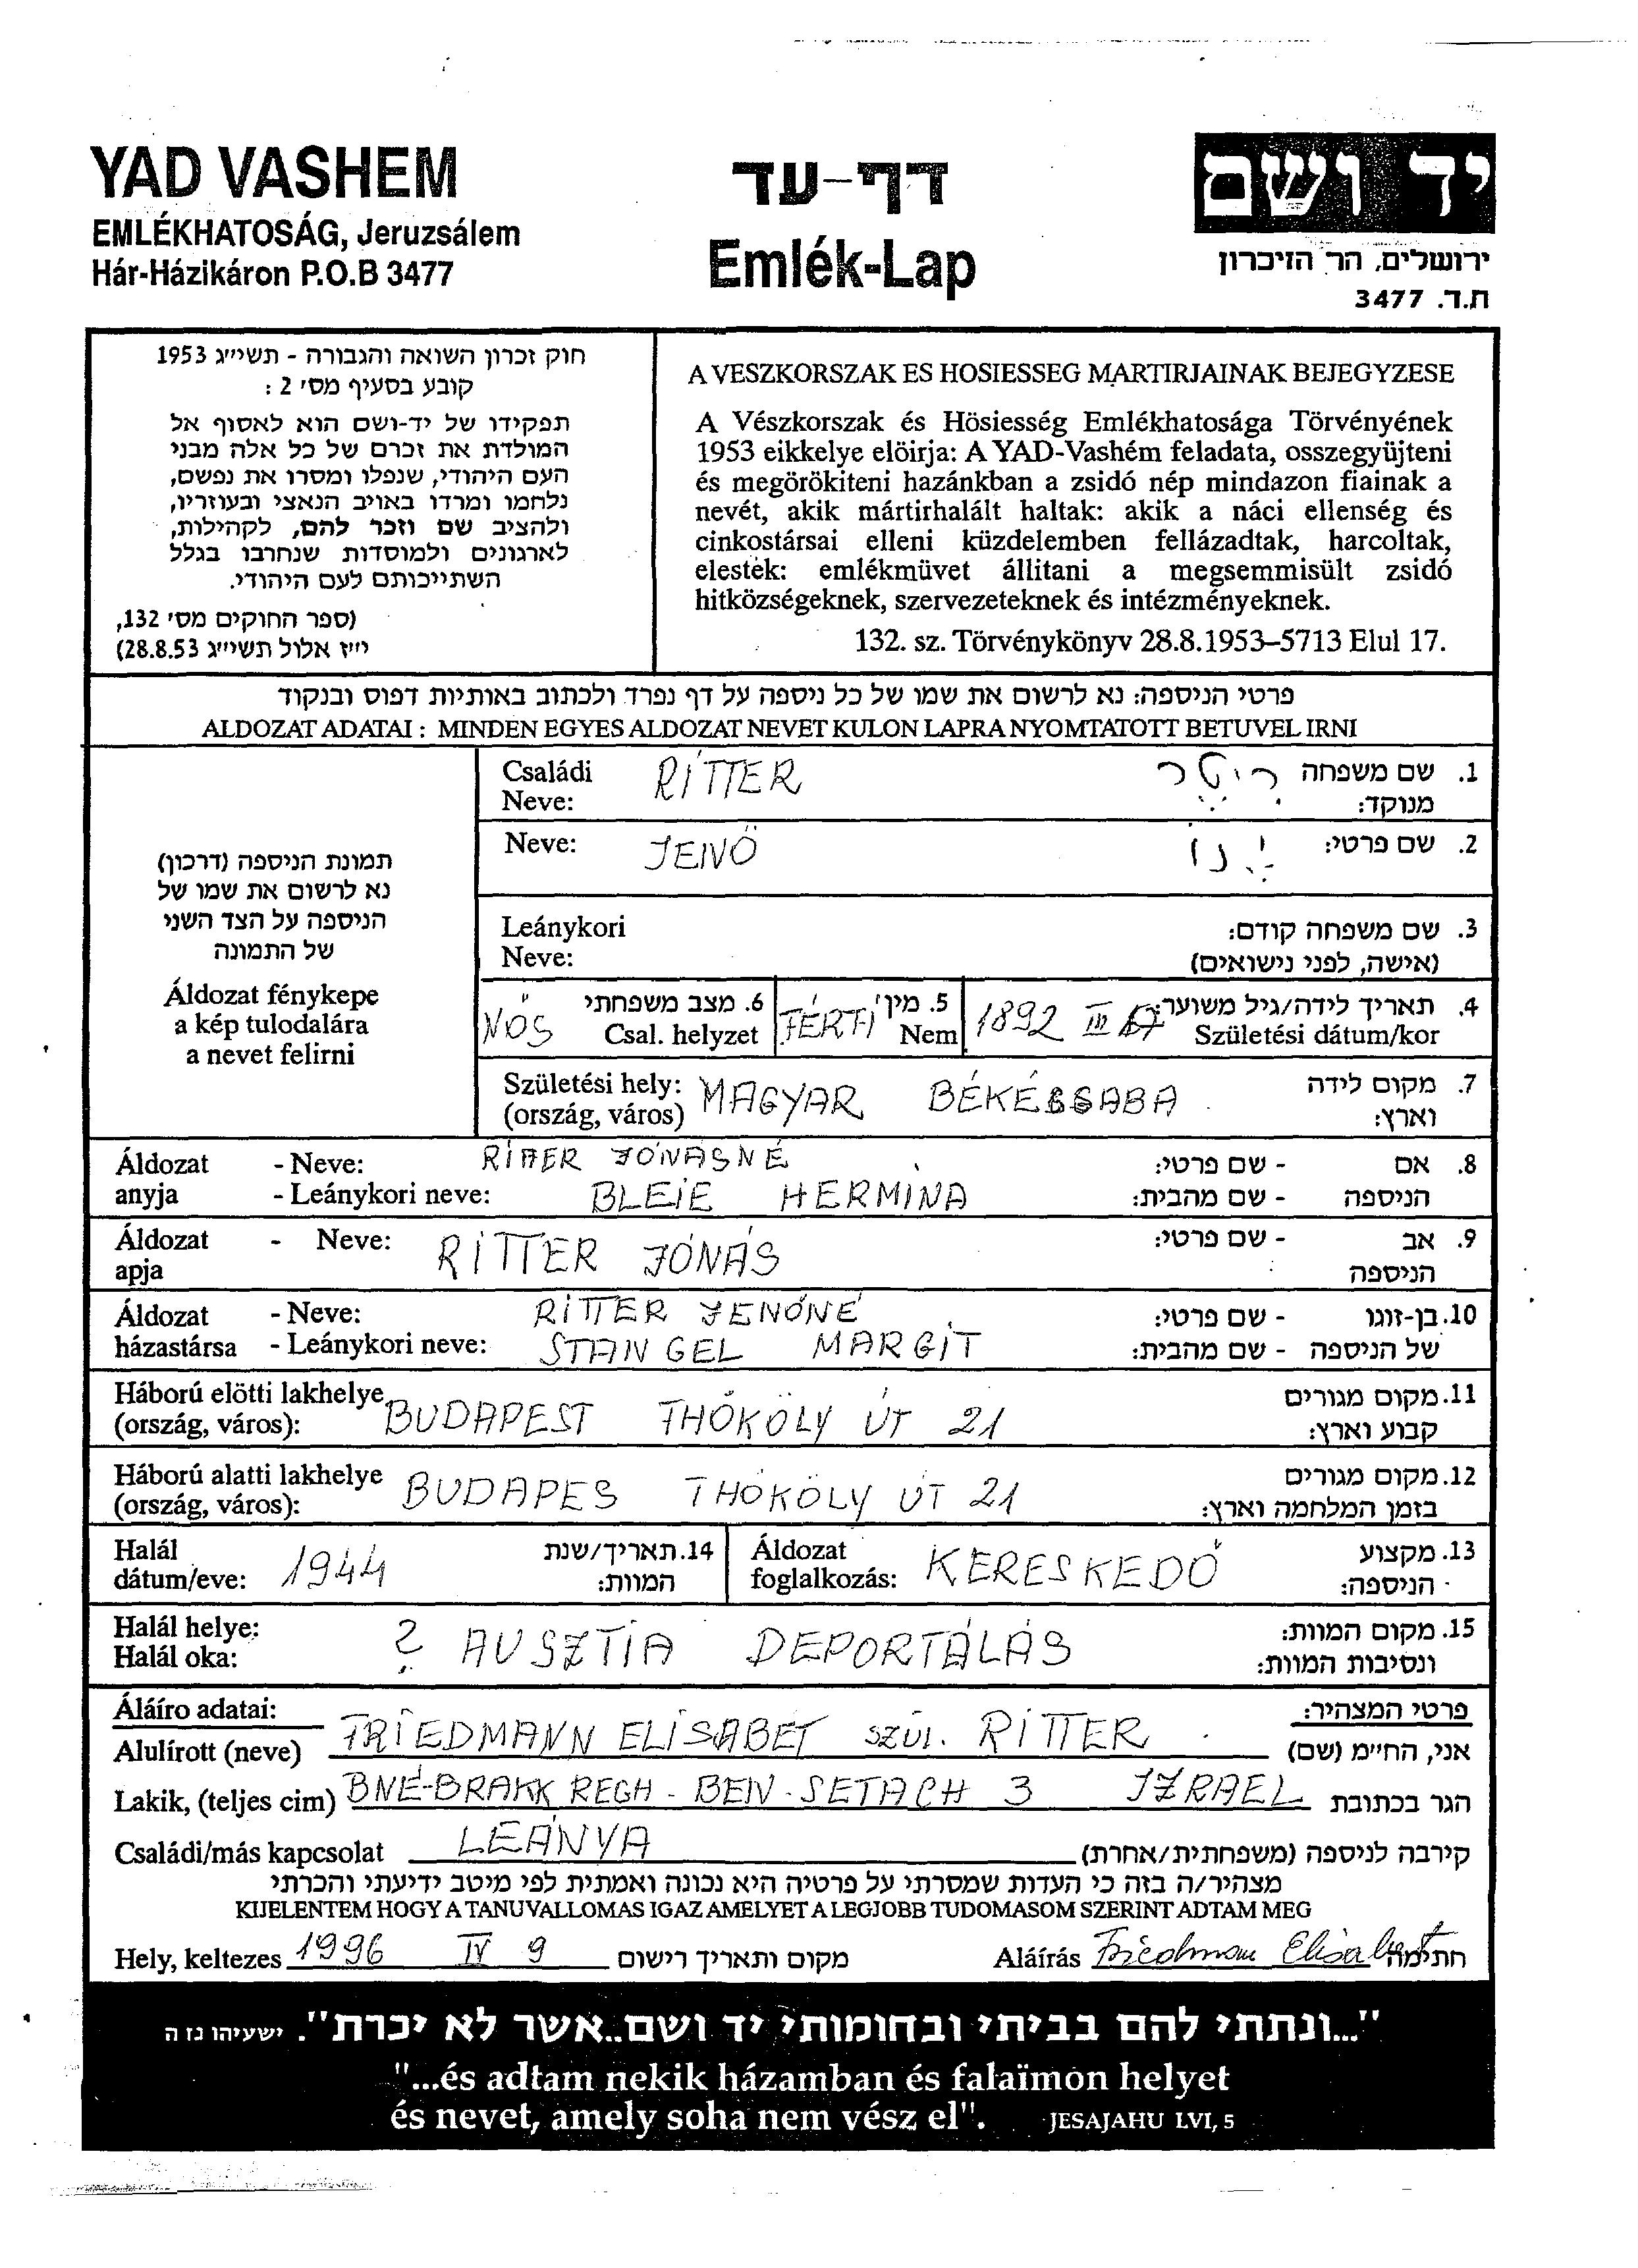 YAD VASHEM
EMLÉKHATOSÁG, Jeruzsálem
Hár-Házikáron P.O.B 3477
דף-עד
Emlék-Lap
יד ושם
ירושלים, הר הזיכרון
ת.ד. 3477
חוק זכרון השואה והגבורה - תשי״ג 1953
קובע בסעיף מס׳ 2 :
תפקידו של יד-ושם הוא לאסוף אל
המולדת את זכרם של כל אלה מבני
העם היהודי, שנפלו ומסרו את נפשם,
נלחמו ומרדו באויב הנאצי ובעוזריו,
ולהציב שם וזכר להם, לקהילות,
לארגונים ולמוסדות שנחרבו בגלל
השתייכותם לעם היהודי.
(ספר החוקים מס׳ 132,
י״ז אלול תשי״ג 28.8.53)
A VESZKORSZAK ES HOSIESSEG MARTIRJAINAK BEJEGYZESE
A Vészkorszak és Hösiesség Emlékhatosága Törvényének
1953 eikkelye elöirja: A YAD-Vashém feladata, osszegyüjteni
és megörökiteni hazánkban a zsidó nép mindazon fiainak a
nevét, akik mártirhalált haltak: akik a náci ellenség és
cinkostársai elleni küzdelemben fellázadtak, harcoltak,
elestek: emlékmüvet állitani a megsemmisült zsidó
hitközségeknek, szervezeteknek és intézményeknek.
132. sz. Törvénykönyv 28.8.1953–5713 Elul 17.
פרטי הניספה: נא לרשום את שמו של כל ניספה על דף נפרד ולכתוב באותיות דפוס ובנקוד
ALDOZAT ADATAI : MINDEN EGYES ALDOZAT NEVET KULON LAPRA NYOMTATOTT BETUVEL IRNI
תמונת הניספה (דרכון)
נא לרשום את שמו של
הניספה על הצד השני
של התמונה
Áldozat fénykepe
a kép tulodalára
a nevet felirni
Családi Neve: RITTER ריטר 1. שם משפחה מנוקד:
Neve: JENŐ ינו 2. שם פרטי:
Leánykori Neve: 3. שם משפחה קודם: (אישה, לפני נישואים)
NŐS 6. מצב משפחתי Csal. helyzet FÉRFI 5. מין Nem 1892 III 4. תאריך לידה/גיל משוער: Születési dátum/kor
Születési hely: (ország, város) MAGYAR BÉKÉSSABA 7. מקום לידה וארץ:
Áldozat - Neve: RITTER JÓNÁSNÉ - שם פרטי: 8. אם
anyja - Leánykori neve: BLEIE HERMINA - שם מהבית: הניספה
Áldozat - Neve: RITTER JÓNÁS - שם פרטי: 9. אב
apja הניספה
Áldozat - Neve: RITTER JENŐNÉ - שם פרטי: 10. בן-זוגו
házastársa - Leánykori neve: STANGEL MARGIT - שם מהבית: של הניספה
Háború elötti lakhelye (ország, város): BUDAPEST THÖKÖLY ÚT 21 11. מקום מגורים קבוע וארץ:
Háború alatti lakhelye (ország, város): BUDAPES THÖKÖLY ÚT 21 12. מקום מגורים בזמן המלחמה וארץ:
Halál dátum/eve: 1944 14. תאריך/שנת המוות: Áldozat foglalkozás: KERESKEDŐ 13. מקצוע הניספה:
Halál helye: Halál oka: ? AUSZTIA DEPORTÁLÁS 15. מקום המוות: ונסיבות המוות:
Áláíro adatai: פרטי המצהיר:
Alulírott (neve) FRIEDMANN ELISABET SZÜL. RITTER אני, החי״מ (שם)
Lakik, (teljes cim) BNÉ-BRAKK REGH - BEN - SETACH 3 IZRAEL הגר בכתובת
Családi/más kapcsolat LEÁNYA קירבה לניספה (משפחתית/אחרת)
מצהיר/ה בזה כי העדות שמסרתי על פרטיה היא נכונה ואמתית לפי מיטב ידיעתי והכרתי
KIJELENTEM HOGY A TANUVALLOMAS IGAZ AMELYET A LEGJOBB TUDOMASOM SZERINT ADTAM MEG
Hely, keltezes 1996 IV 9 מקום ותאריך רישום Aláírás Friedmann Elisabet חתימה
"...ונתתי להם בביתי ובחומותי יד ושם..אשר לא יכרת". ישעיהו נז ה
"...és adtam nekik házamban és falaïmon helyet
és nevet, amely soha nem vész el". JESAJAHU LVI, 5